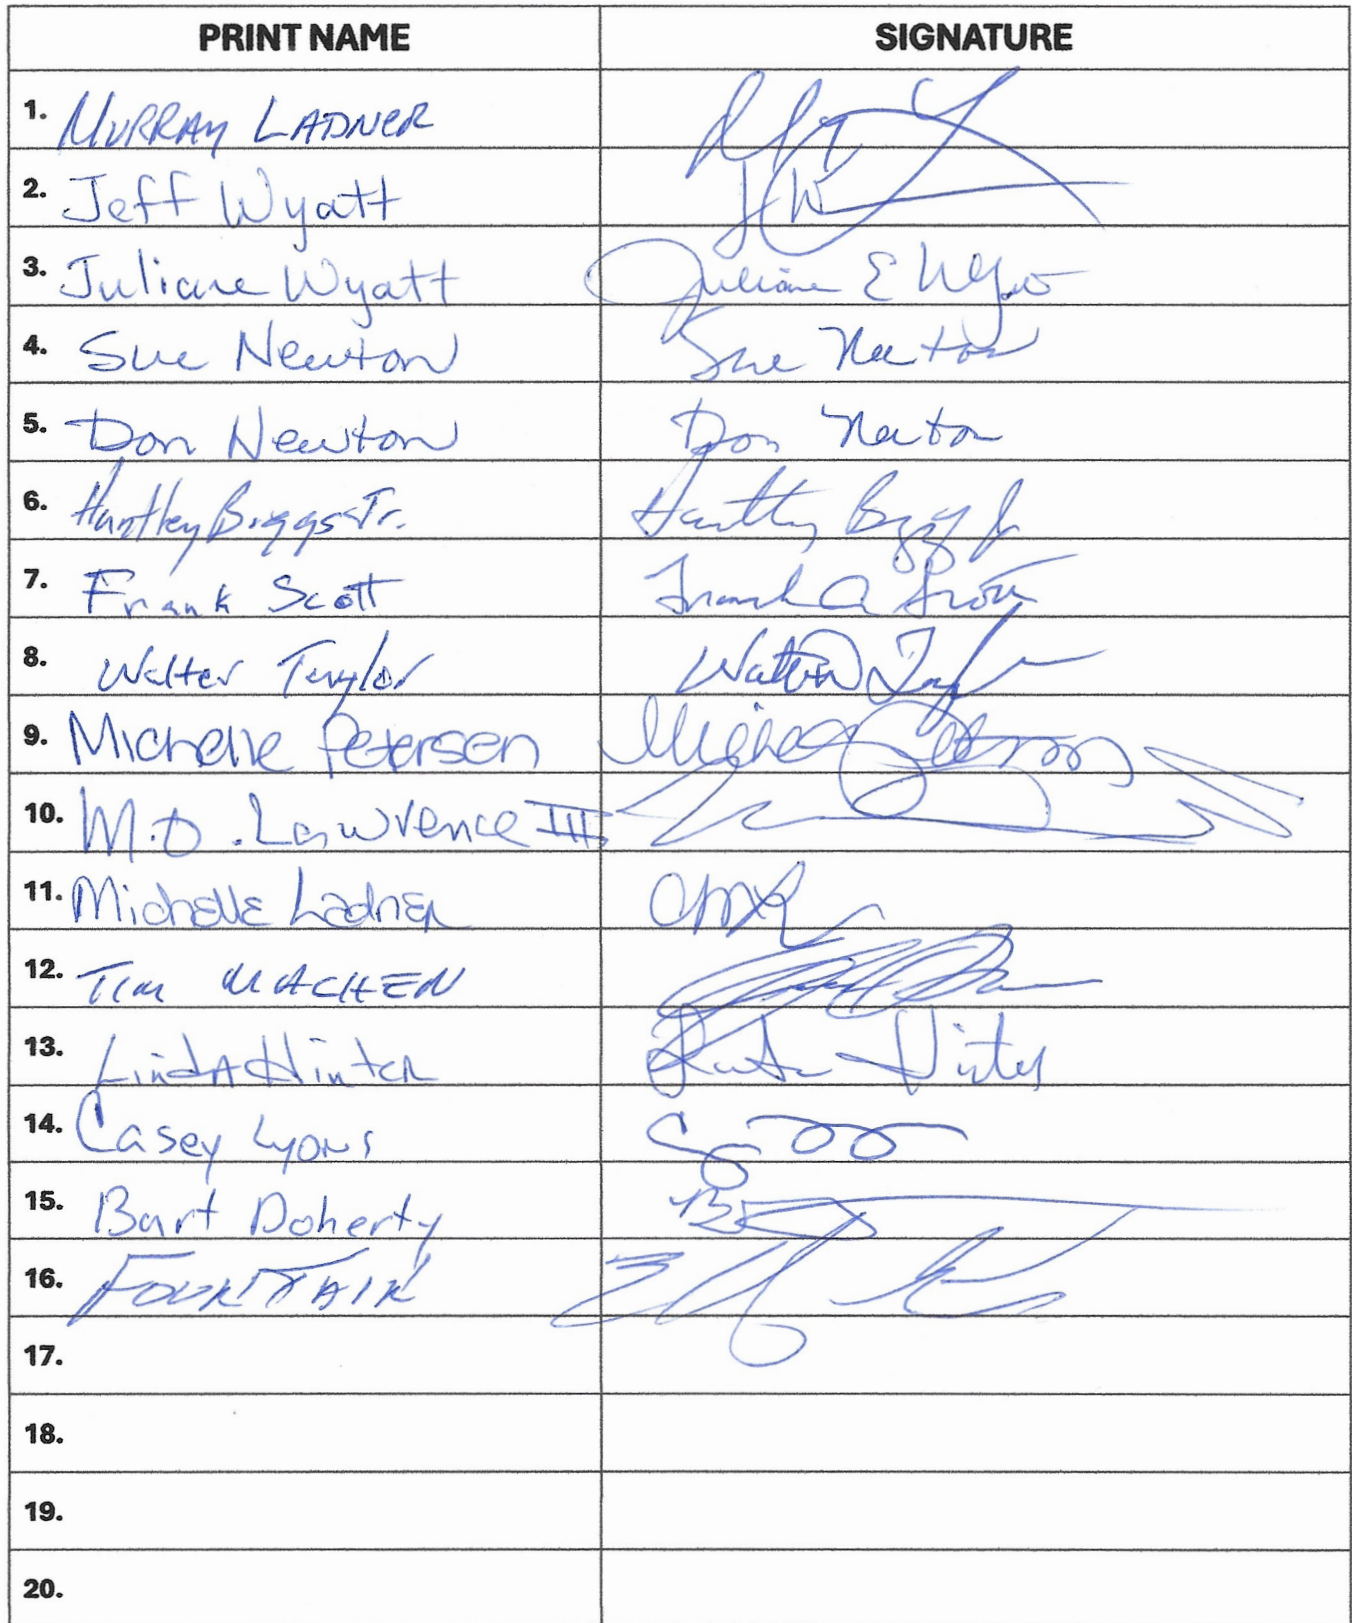 PRINT NAME SIGNATURE
1. MURRAY LADNER
2. Jeff Wyatt JW
3. Juliane Wyatt Juliane E Wyatt
4. Sue Newton Sue Newton
5. Don Newton Don Newton
6. Huntley Biggs Jr. Huntley Biggs Jr
7. Frank Scott Frank A Scott
8. Walter Taylor Walter Taylor
9. Michelle Petersen Michelle Petersen
10. M.D. Lawrence III
11. Michelle Ladner
12. Tim MACHEN
13. Linda Hinter
14. Casey Lyons
15. Bart Doherty
16. FOUNTAIN
17.
18.
19.
20.